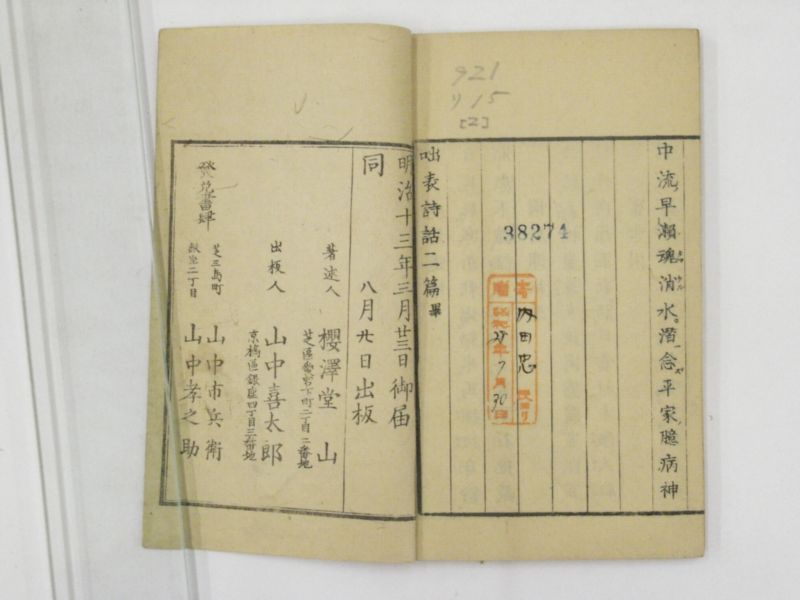 921
リ15
[2]
中流早瀬魂消水潜念平家臆病神
38274
寄贈
内田忠
氏ヨリ
昭和29年7月30日
咄表詩話二篇畢
明治十三年三月廿三日御届
同 八月廿日出板
著述人 櫻澤堂山
芝區愛宕下町二丁目二番地
出板人 山中喜太郎
京橋區銀座四丁目三番地
發兌書肆
芝三島町 山中市兵衛
銀座二丁目 山中孝之助